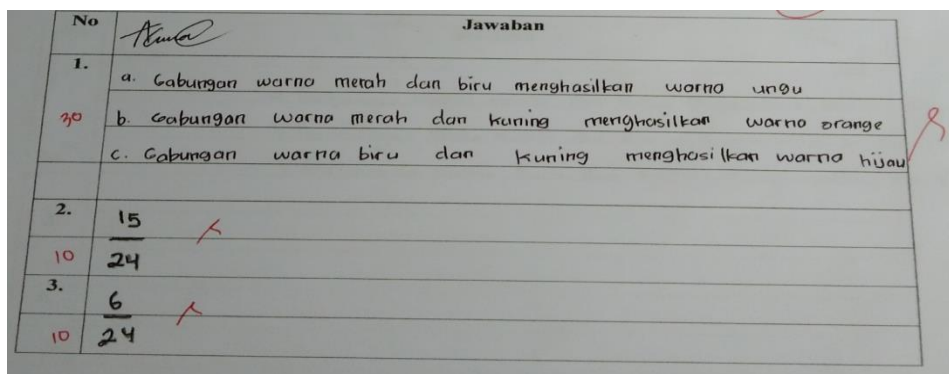 No Jawaban
1.
a. Gabungan warna merah dan biru menghasilkan warna ungu
30 b. Gabungan warna merah dan kuning menghasilkan warna orange
c. Gabungan warna biru dan kuning menghasilkan warna hijau
2.
15
10 24
3.
6
10 24